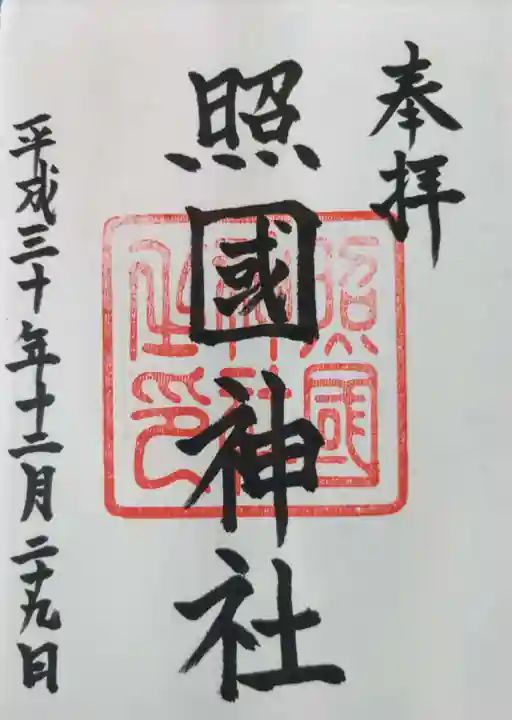 奉拝
照國神社
照國
神社
之印
平成三十年十二月二十九日